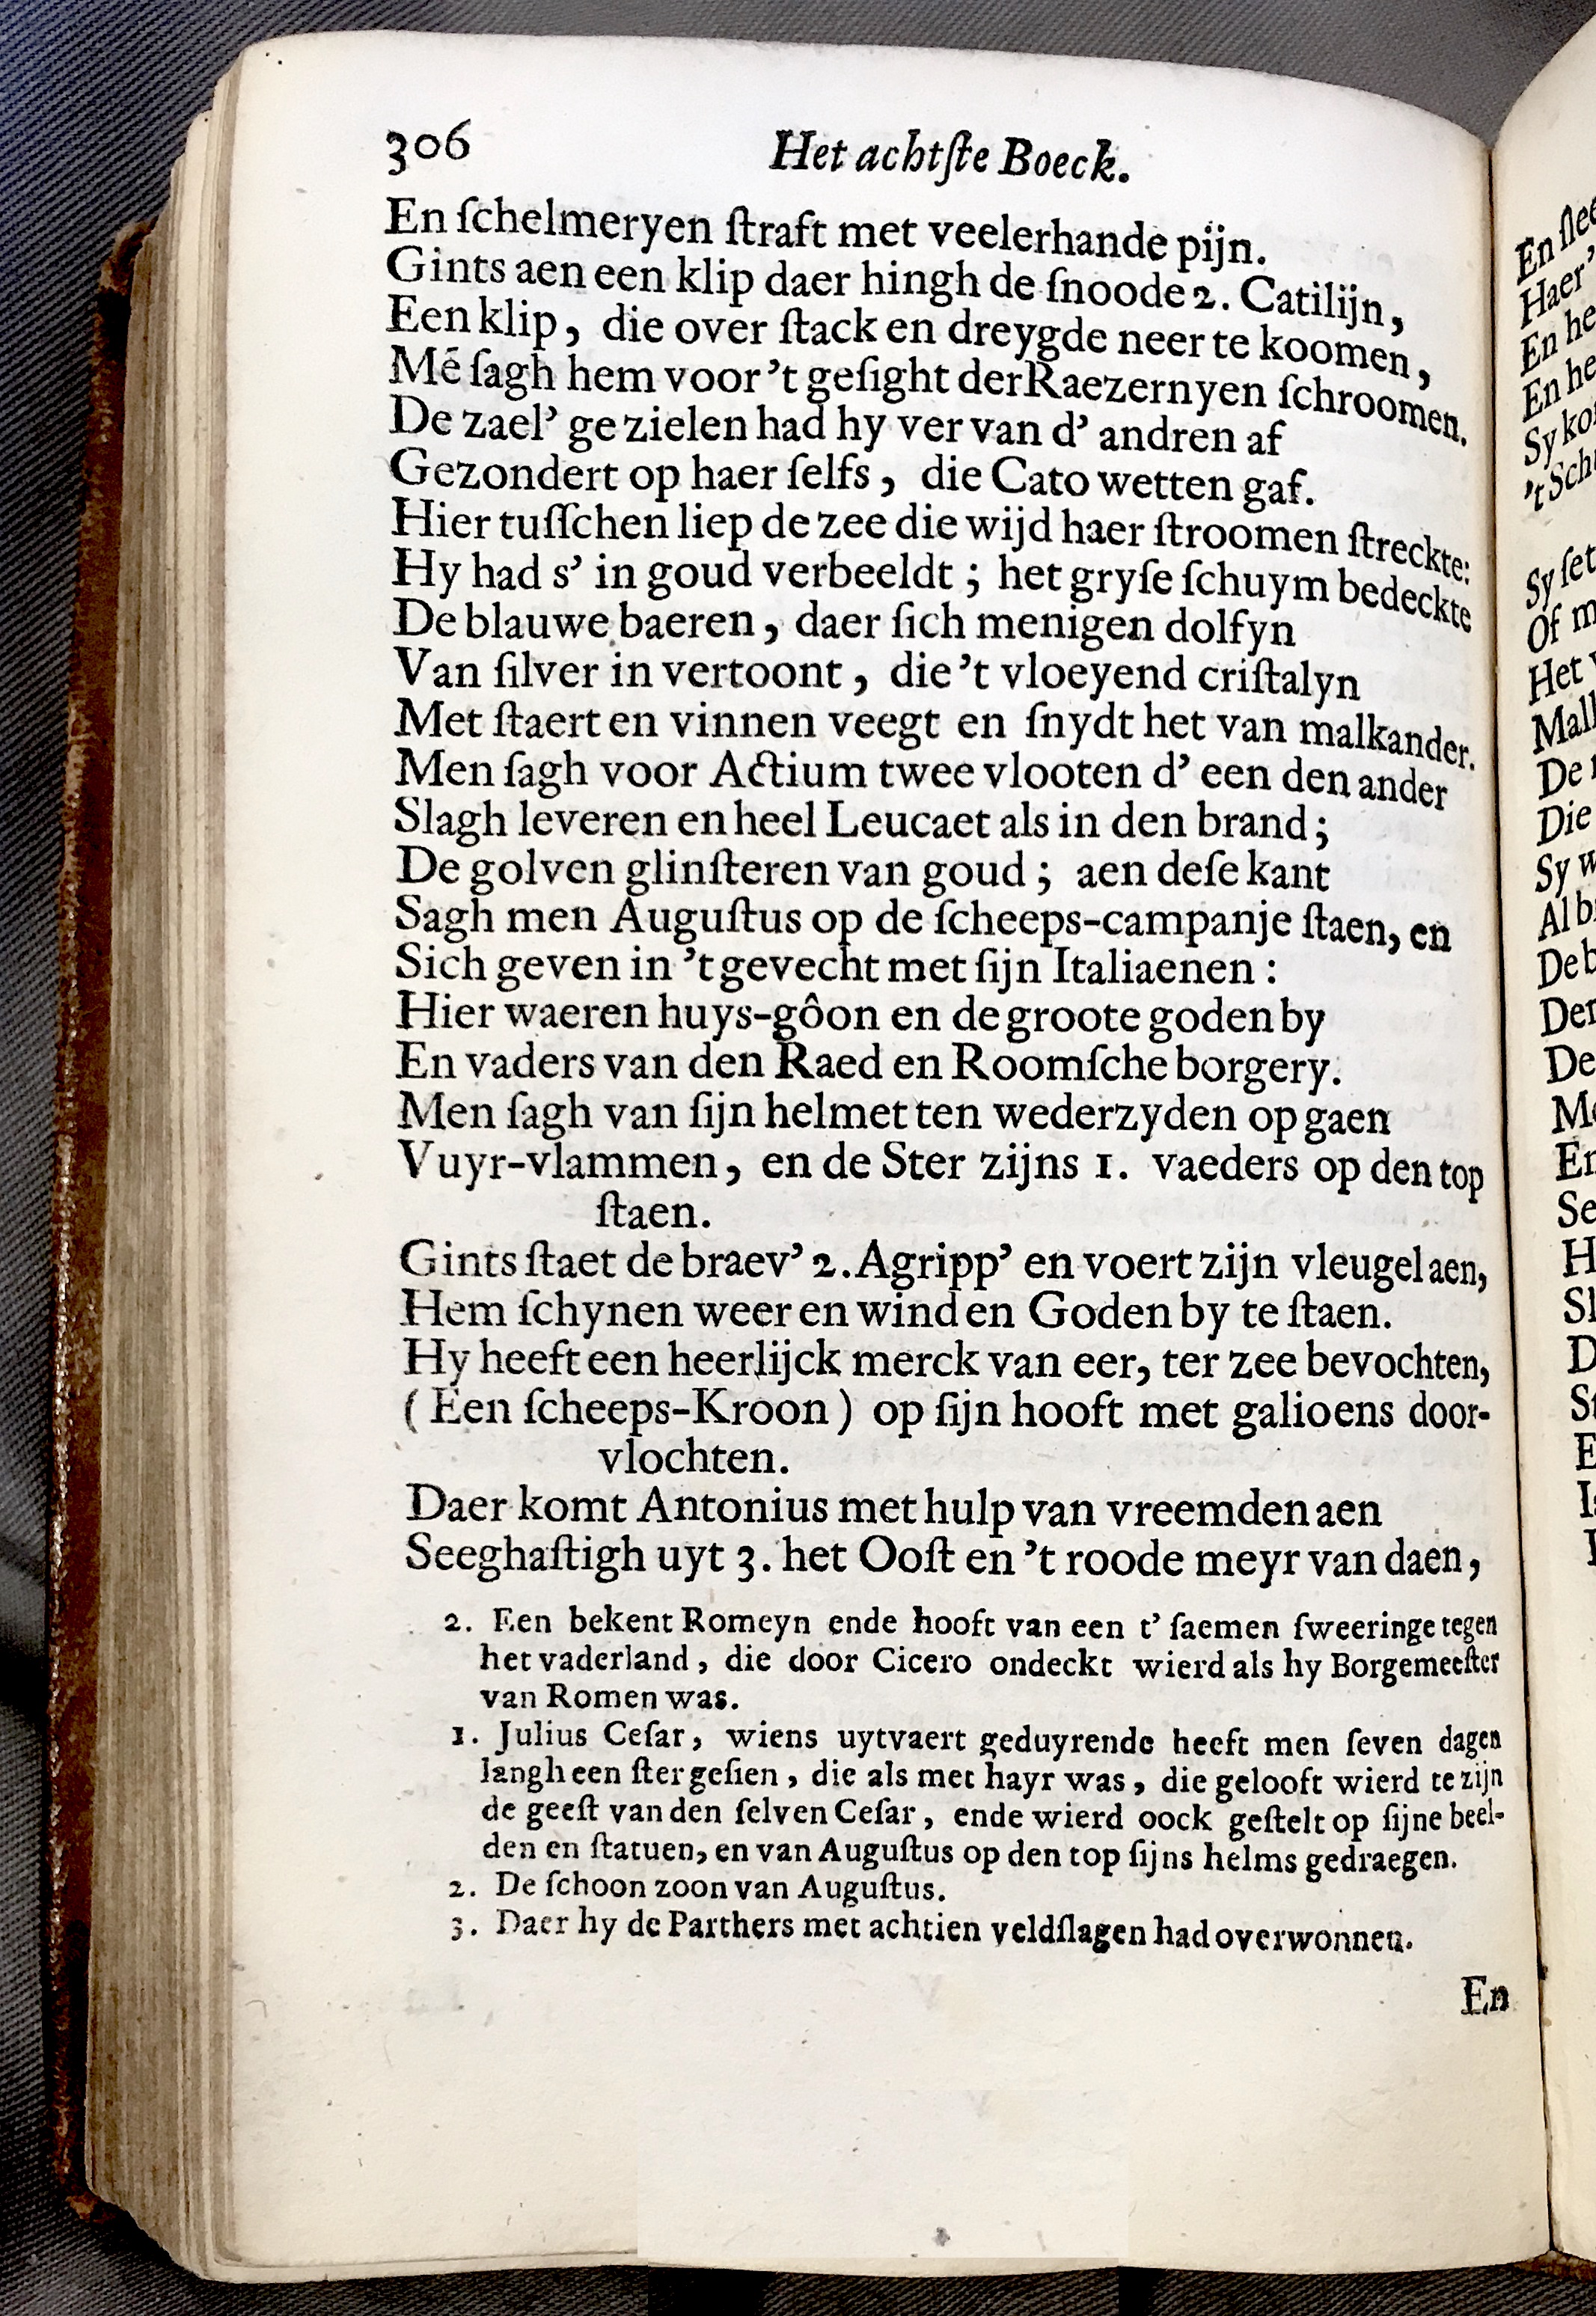 306
Het achtſte Boeck.
En ſchelmeryen ſtraft met veelerhande pijn.
Gints aen een klip daer hingh de ſnoode 2. Catilijn,
Een klip, die over ſtack en dreygde neer te koomen,
Mé ſagh hem voor 't geſight der Raezernyen ſchroomen.
De zael' ge zielen had hy ver van d' andren af
Gezondert op haer ſelfs, die Cato wetten gaf.
Hier tuſſchen liep de zee die wijd haer ſtroomen ſtreckte:
Hy had s' in goud verbeeldt; het gryſe ſchuym bedeckte
De blauwe baeren, daer ſich menigen dolfyn
Van ſilver in vertoont, die 't vloeyend criſtalyn
Met ſtaert en vinnen veegt en ſnydt het van malkander.
Men ſagh voor Actium twee vlooten d' een den ander
Slagh leveren en heel Leucaet als in den brand;
De golven glinſteren van goud; aen deſe kant
Sagh men Auguſtus op de ſcheeps-campanje ſtaen, en
Sich geven in 't gevecht met ſijn Italiaenen:
Hier waeren huys-gôon en de groote goden by
En vaders van den Raed en Roomſche borgery.
Men ſagh van ſijn helmet ten wederzyden op gaen
Vuyr-vlammen, en de Ster zijns 1. vaeders op den top
ſtaen.
Gints ſtaet de braev' 2. Agripp' en voert zijn vleugel aen,
Hem ſchynen weer en wind en Goden by te ſtaen.
Hy heeft een heerlijck merck van eer, ter zee bevochten,
(Een ſcheeps-Kroon) op ſijn hooft met galioens door-
vlochten.
Daer komt Antonius met hulp van vreemden aen
Seeghaftigh uyt 3. het Ooſt en 't roode meyr van daen,
2. Een bekent Romeyn ende hooft van een t' ſaemen ſweeringe tegen
het vaderland, die door Cicero ondeckt wierd als hy Borgemeeſter
van Romen was.
1. Julius Ceſar, wiens uytvaert geduyrende heeft men ſeven dagen
langh een ſter geſien, die als met hayr was, die gelooft wierd te zijn
de geeſt van den ſelven Ceſar, ende wierd oock geſtelt op ſijne beel-
den en ſtatuen, en van Auguſtus op den top ſijns helms gedraegen.
2. De ſchoon zoon van Auguſtus.
3. Daer hy de Parthers met achtien veldſlagen had overwonnen.
En
En
Haer'
En
En
Sy
Sy
Of
Het
De
Die
Sy
Al
De
En